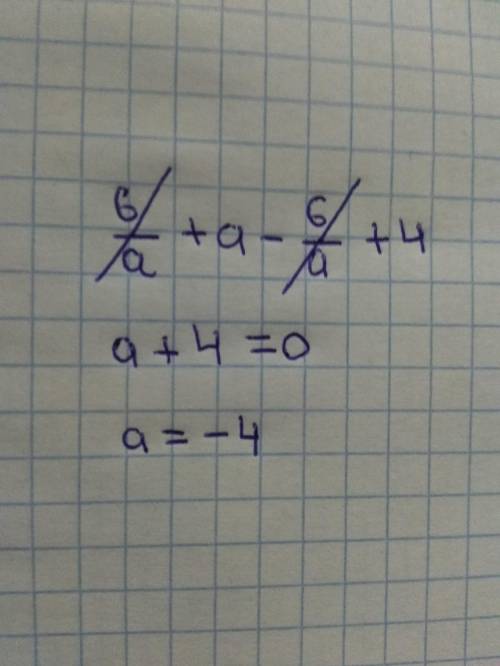 6/a + a - 6/a + 4
a + 4 = 0
a = - 4